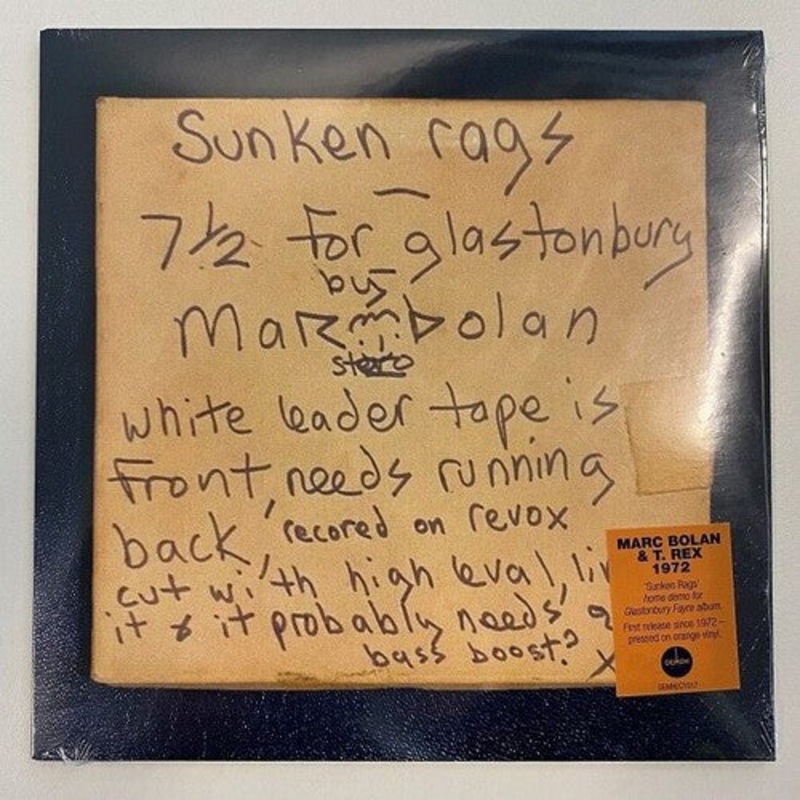 Sunken rags
7 1/2 for glastonbury
by
Marc bolan
stero
white leader tape is
front, needs running
back, recored on revox
cut with high leval,
it & it probably needs a
bass boost? x
MARC BOLAN
& T. REX
1972
'Sunken Rags'
home demo for
Glastonbury Fayre album.
First release since 1972 –
pressed on orange vinyl.
DEMON